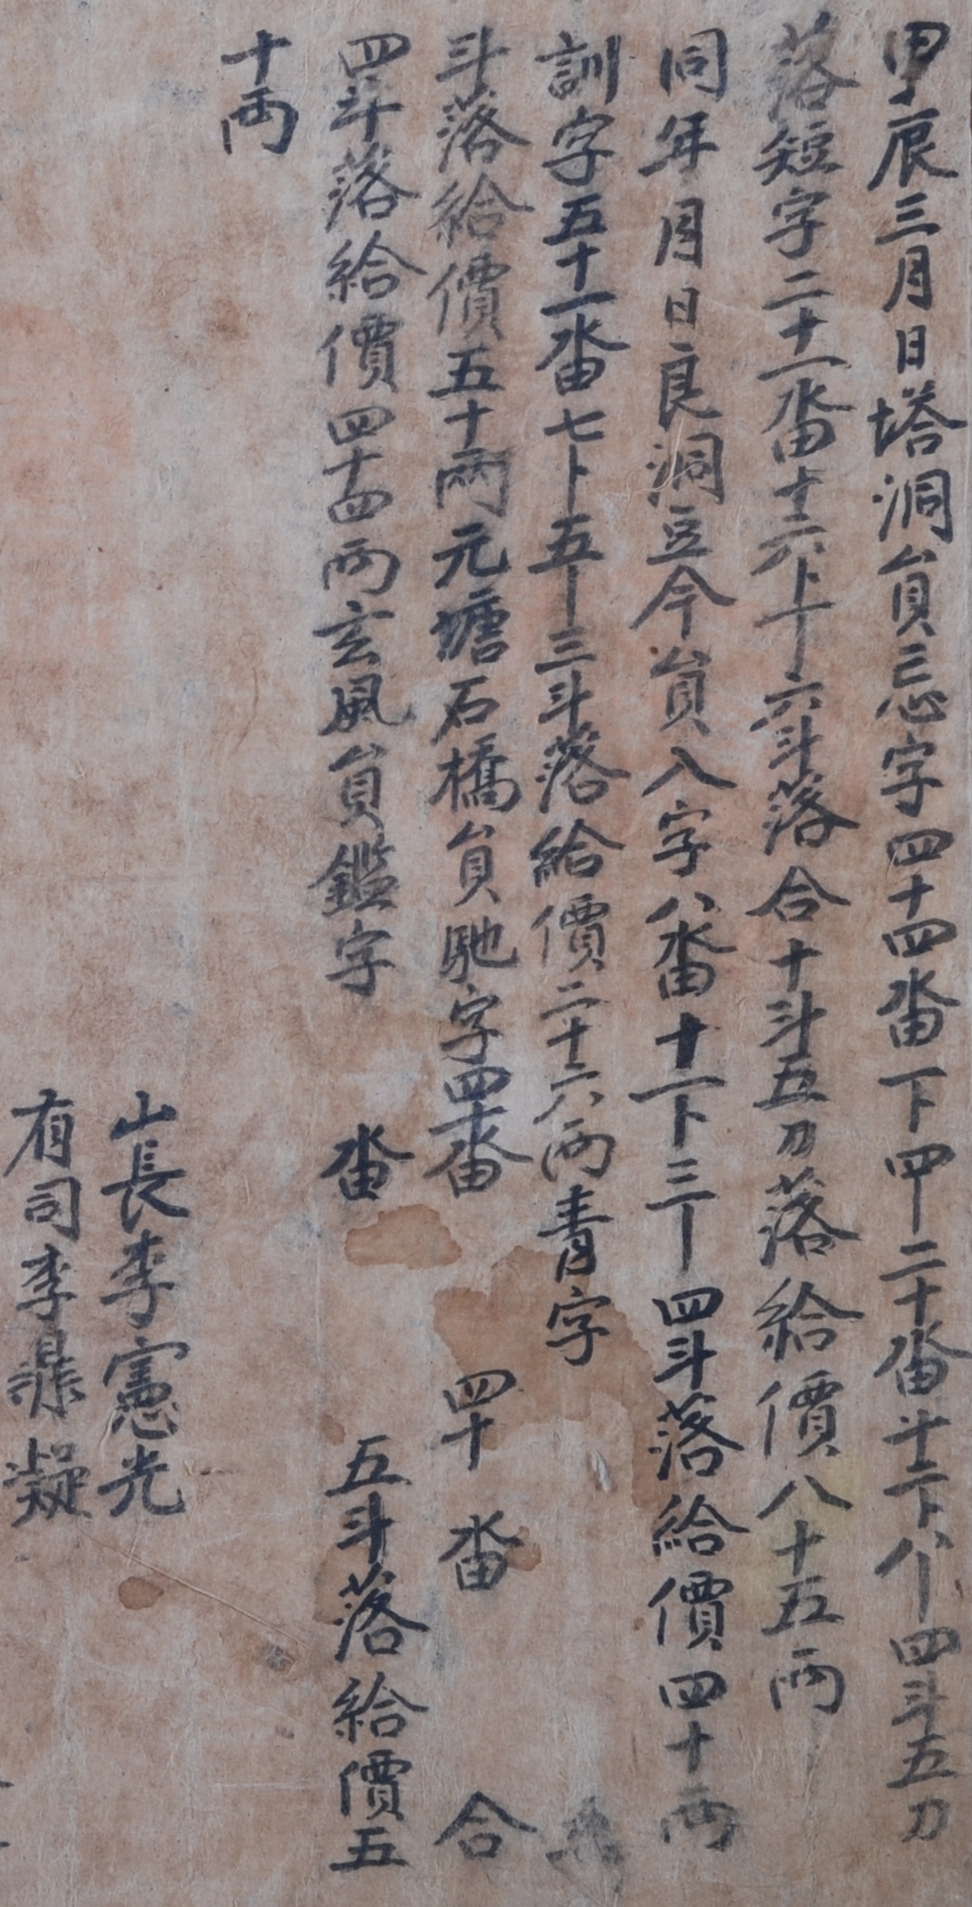 甲辰三月日塔洞員忘字四十四畓下甲二十畓十二卜八卜四斗五刀
落短字二十一畓十六卜十卜六斗落合十斗五刀落給價八十五兩
同年月日良洞豆今員入字八畓十一卜三卜四斗落給價四十兩
訓字五十一畓七卜五卜三斗落給價二十六兩青字
斗落給價五十兩元塘石橋員馳字四畓四十畓合
四斗落給價四十四兩玄風員鑑字畓五斗落給價五
十兩
山長李憲光
有司李鼎凝